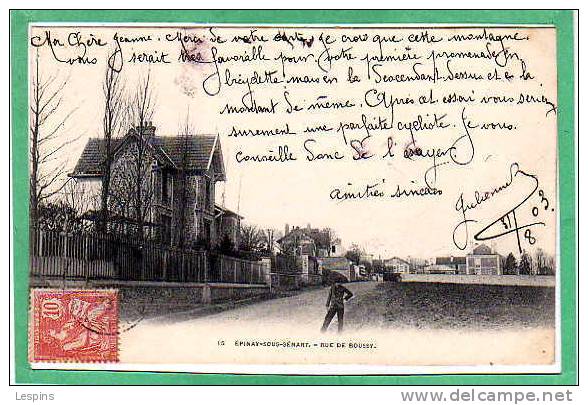 Ma Chère Jeanne. Merci de votre carte, je crois que cette montagne
vous serait très favorable pour votre première promenade en
bicyclette mais en la descendant dessus et en la
montant de même. Après cet essai vous serez
surement une parfaite cycliste. Je vous
conseille donc de l'essayer.
amitiés sincères
Julienne
31/8 03
10
15 ÉPINAY-SOUS-SÉNART. - RUE DE BOUSSY.
Lespins
(C) www.delcampe.net